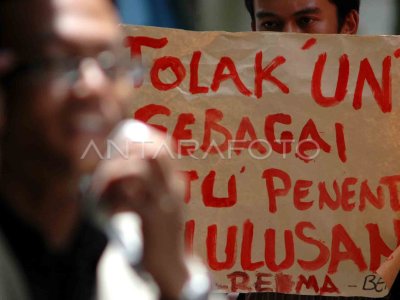 Tolak 'UN'
SEBAGAI
PENENT
LULUSAN
REDMA - BE
ANTARAFOTO